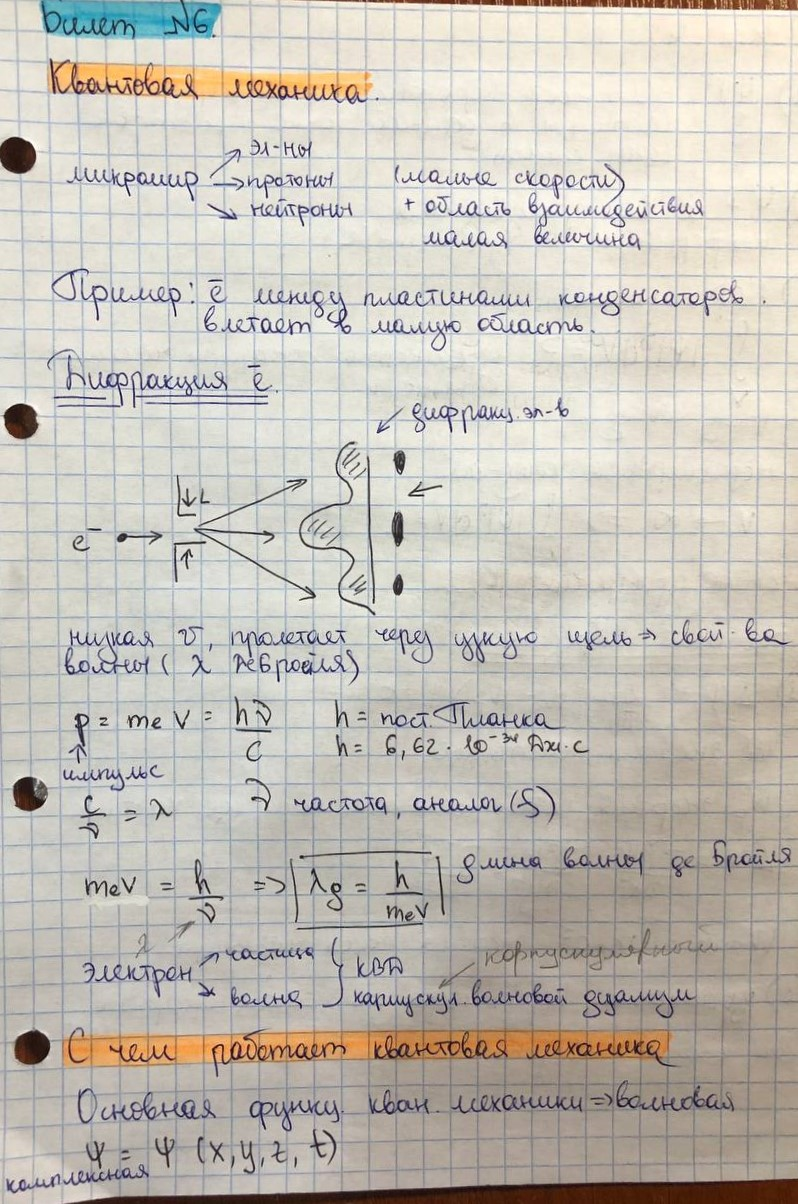 Билет №6.
Квантовая механика.
эл-ны
микромир → протоны (малые скорости)
нейтроны + область взаимодействия
малая величина
Пример: ē между пластинами конденсаторов.
влетает в малую область.
Дифракция ē.
дифракц. эл-в
L
e⁻
низкая v, пролетает через узкую щель → свой-ва
волны (λ деБройля)
p = meV = hν/c h = пост. Планка
импульс h = 6,62 · 10⁻³⁴ Дж·с
c/ν = λ ν частота, аналог (f)
meV = h/ν => λg = h/meV длина волны де Бройля
λ
Электрон частица КВД корпускулярный
волна карпускул. волновой дуализм
С чем работает квантовая механика
Основная функц. кван. механики => волновая
Ψ = Ψ (x, y, z, t)
комплексная